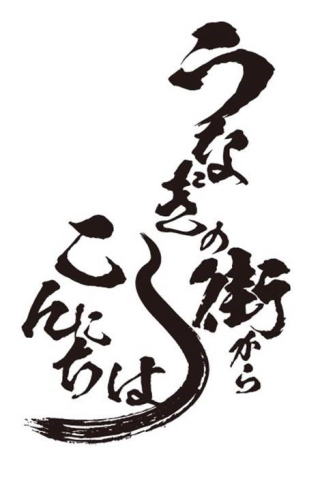 うなぎの街から
こんにちは